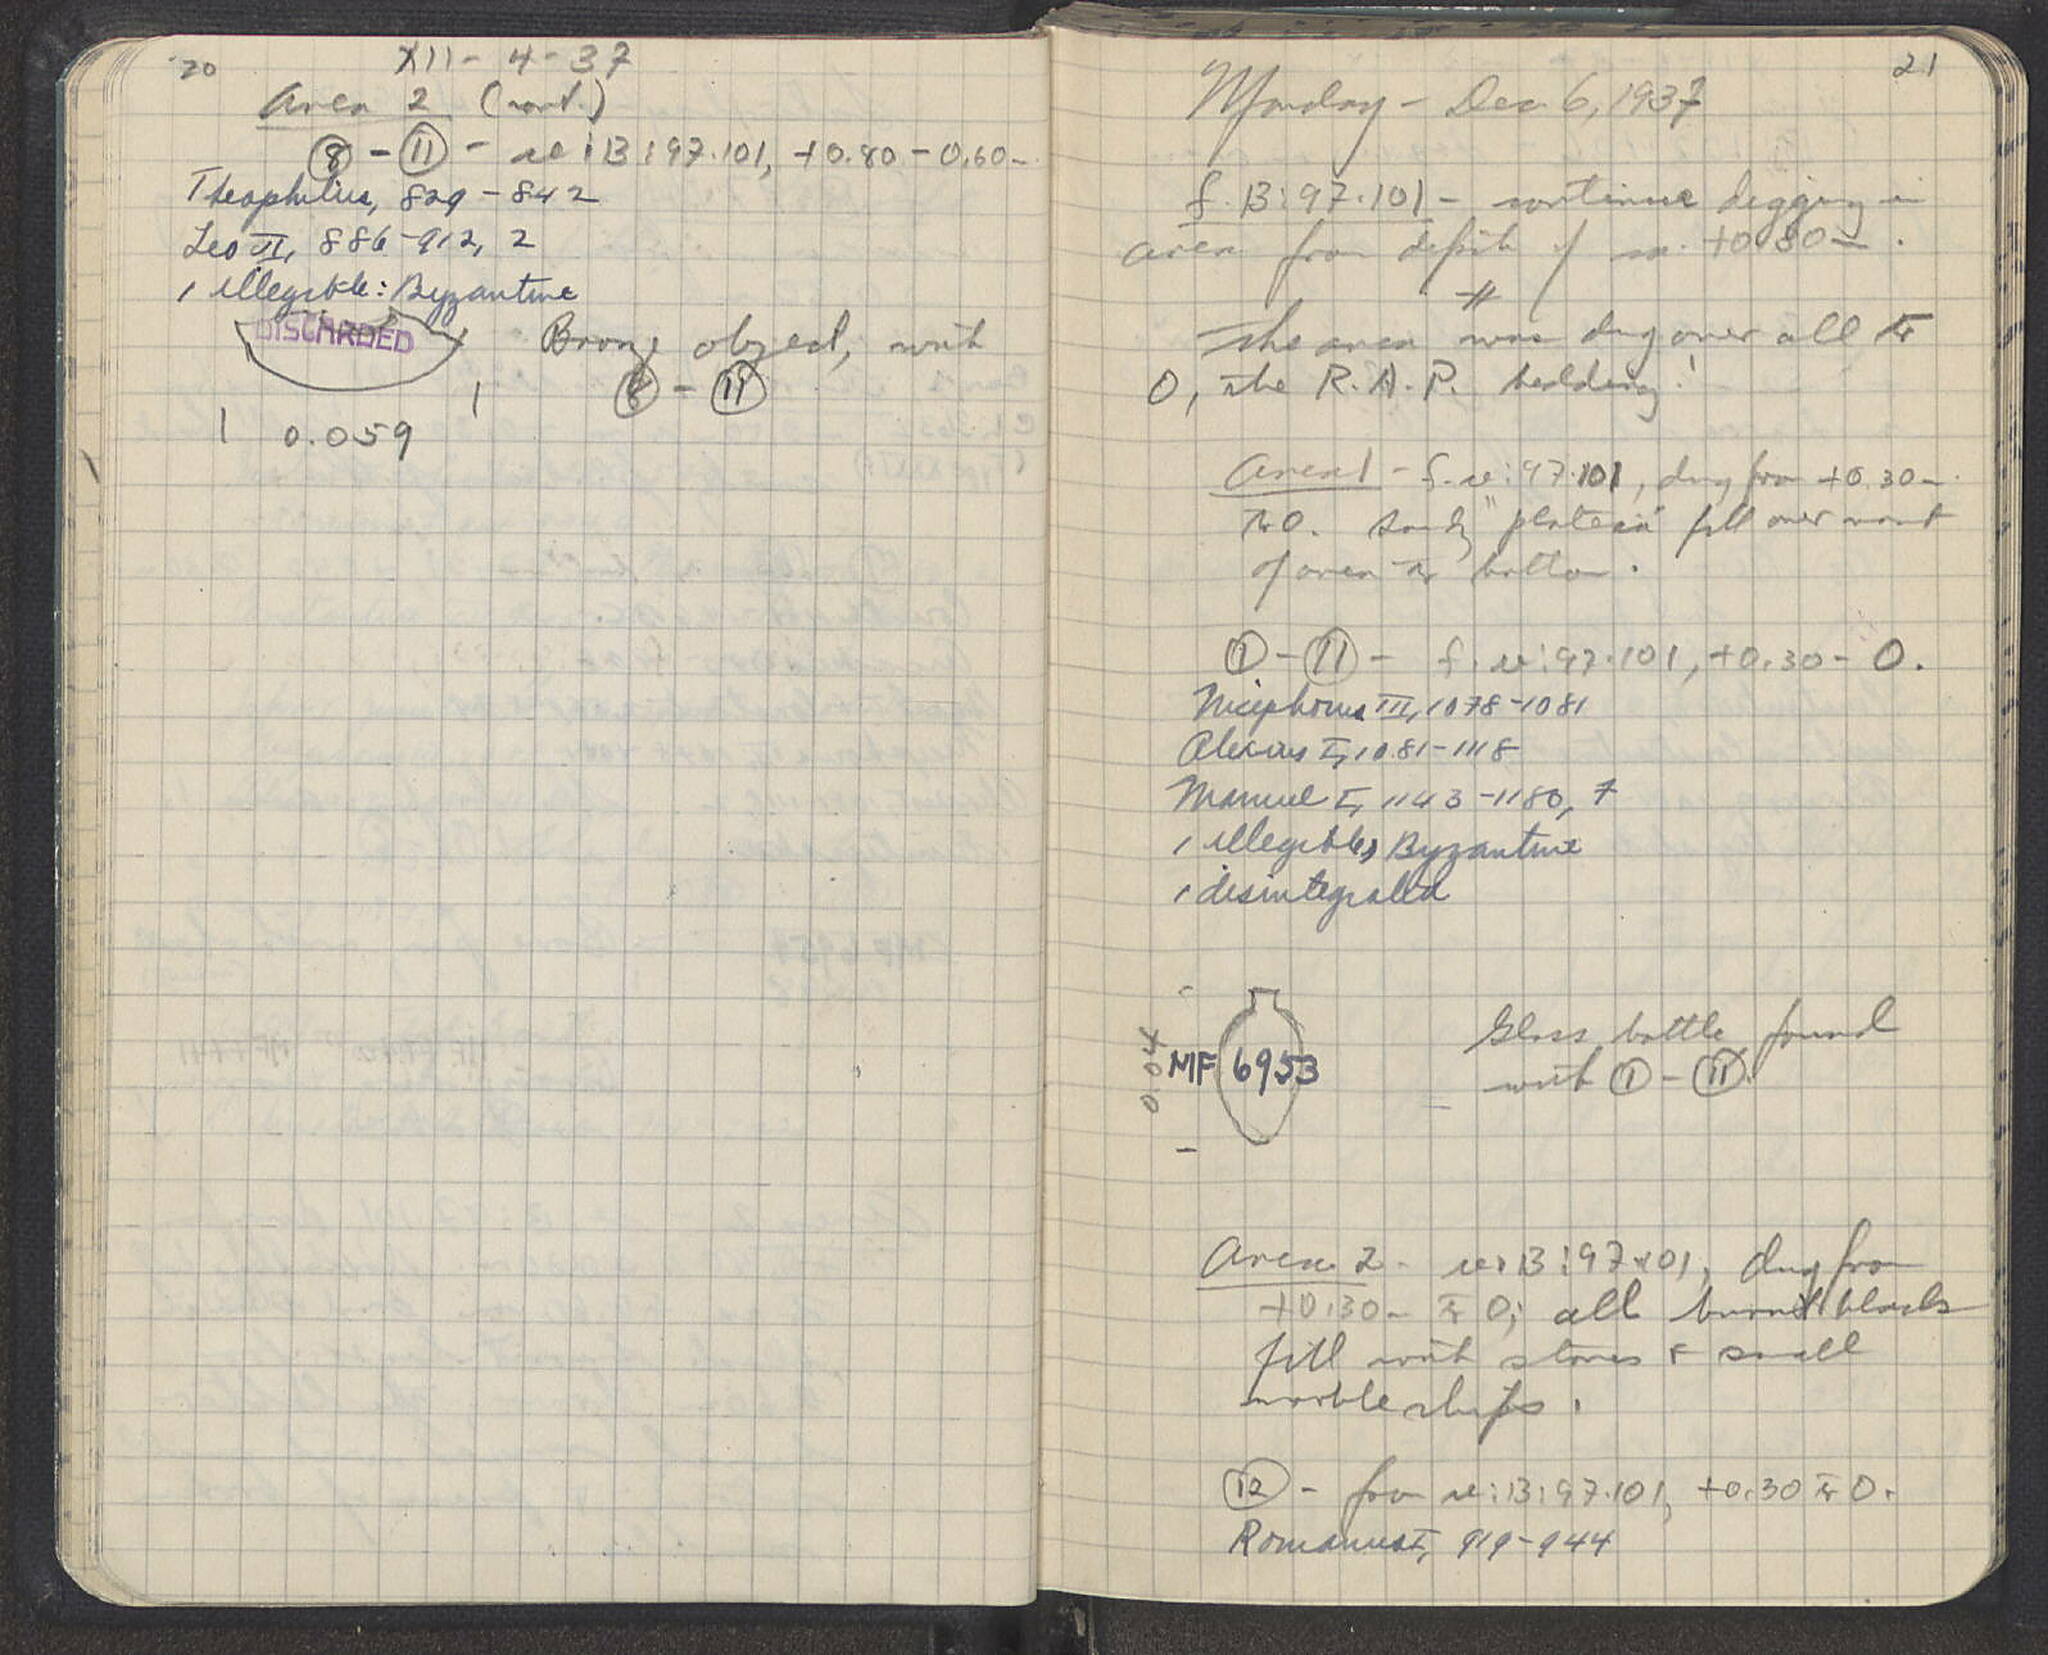 20
XII - 4 - 37
Area 2 (cont.)
⑧ - ⑪ - se:B:97.101, +0.80 - 0.60 -
Theophilus, 829 - 842
Leo VI, 886 - 912, 2
1 illegible: Byzantine
DISCARDED
Bronze object, with
⑧ - ⑪
0.059
21
Monday - Dec 6, 1937
f. B:97.101 - continue digging in
area from depth of ca. +0.80 - .
The area was dug over all to
0, the R.A.P. holding!
Area 1 - f. se:97.101, dug from +0.30 -
to 0. Sandy "plateia" fill over most
of area to bottom.
① - ⑪ - f. se:97.101, +0.30 - 0.
Nicephorus III, 1078-1081
Alexius I, 1081-1118
Manuel I, 1143-1180, 7
1 illegible, Byzantine
1 disintegrated
0.04
MF 6953
Glass bottle found
with ① - ⑪.
Area 2 - se:B:97.101, dug from
+0.30 - to 0; all burnt black
fill with stones & small
marble chips.
⑫ - from se:B:97.101, +0.30 to 0.
Romanus I, 919-944